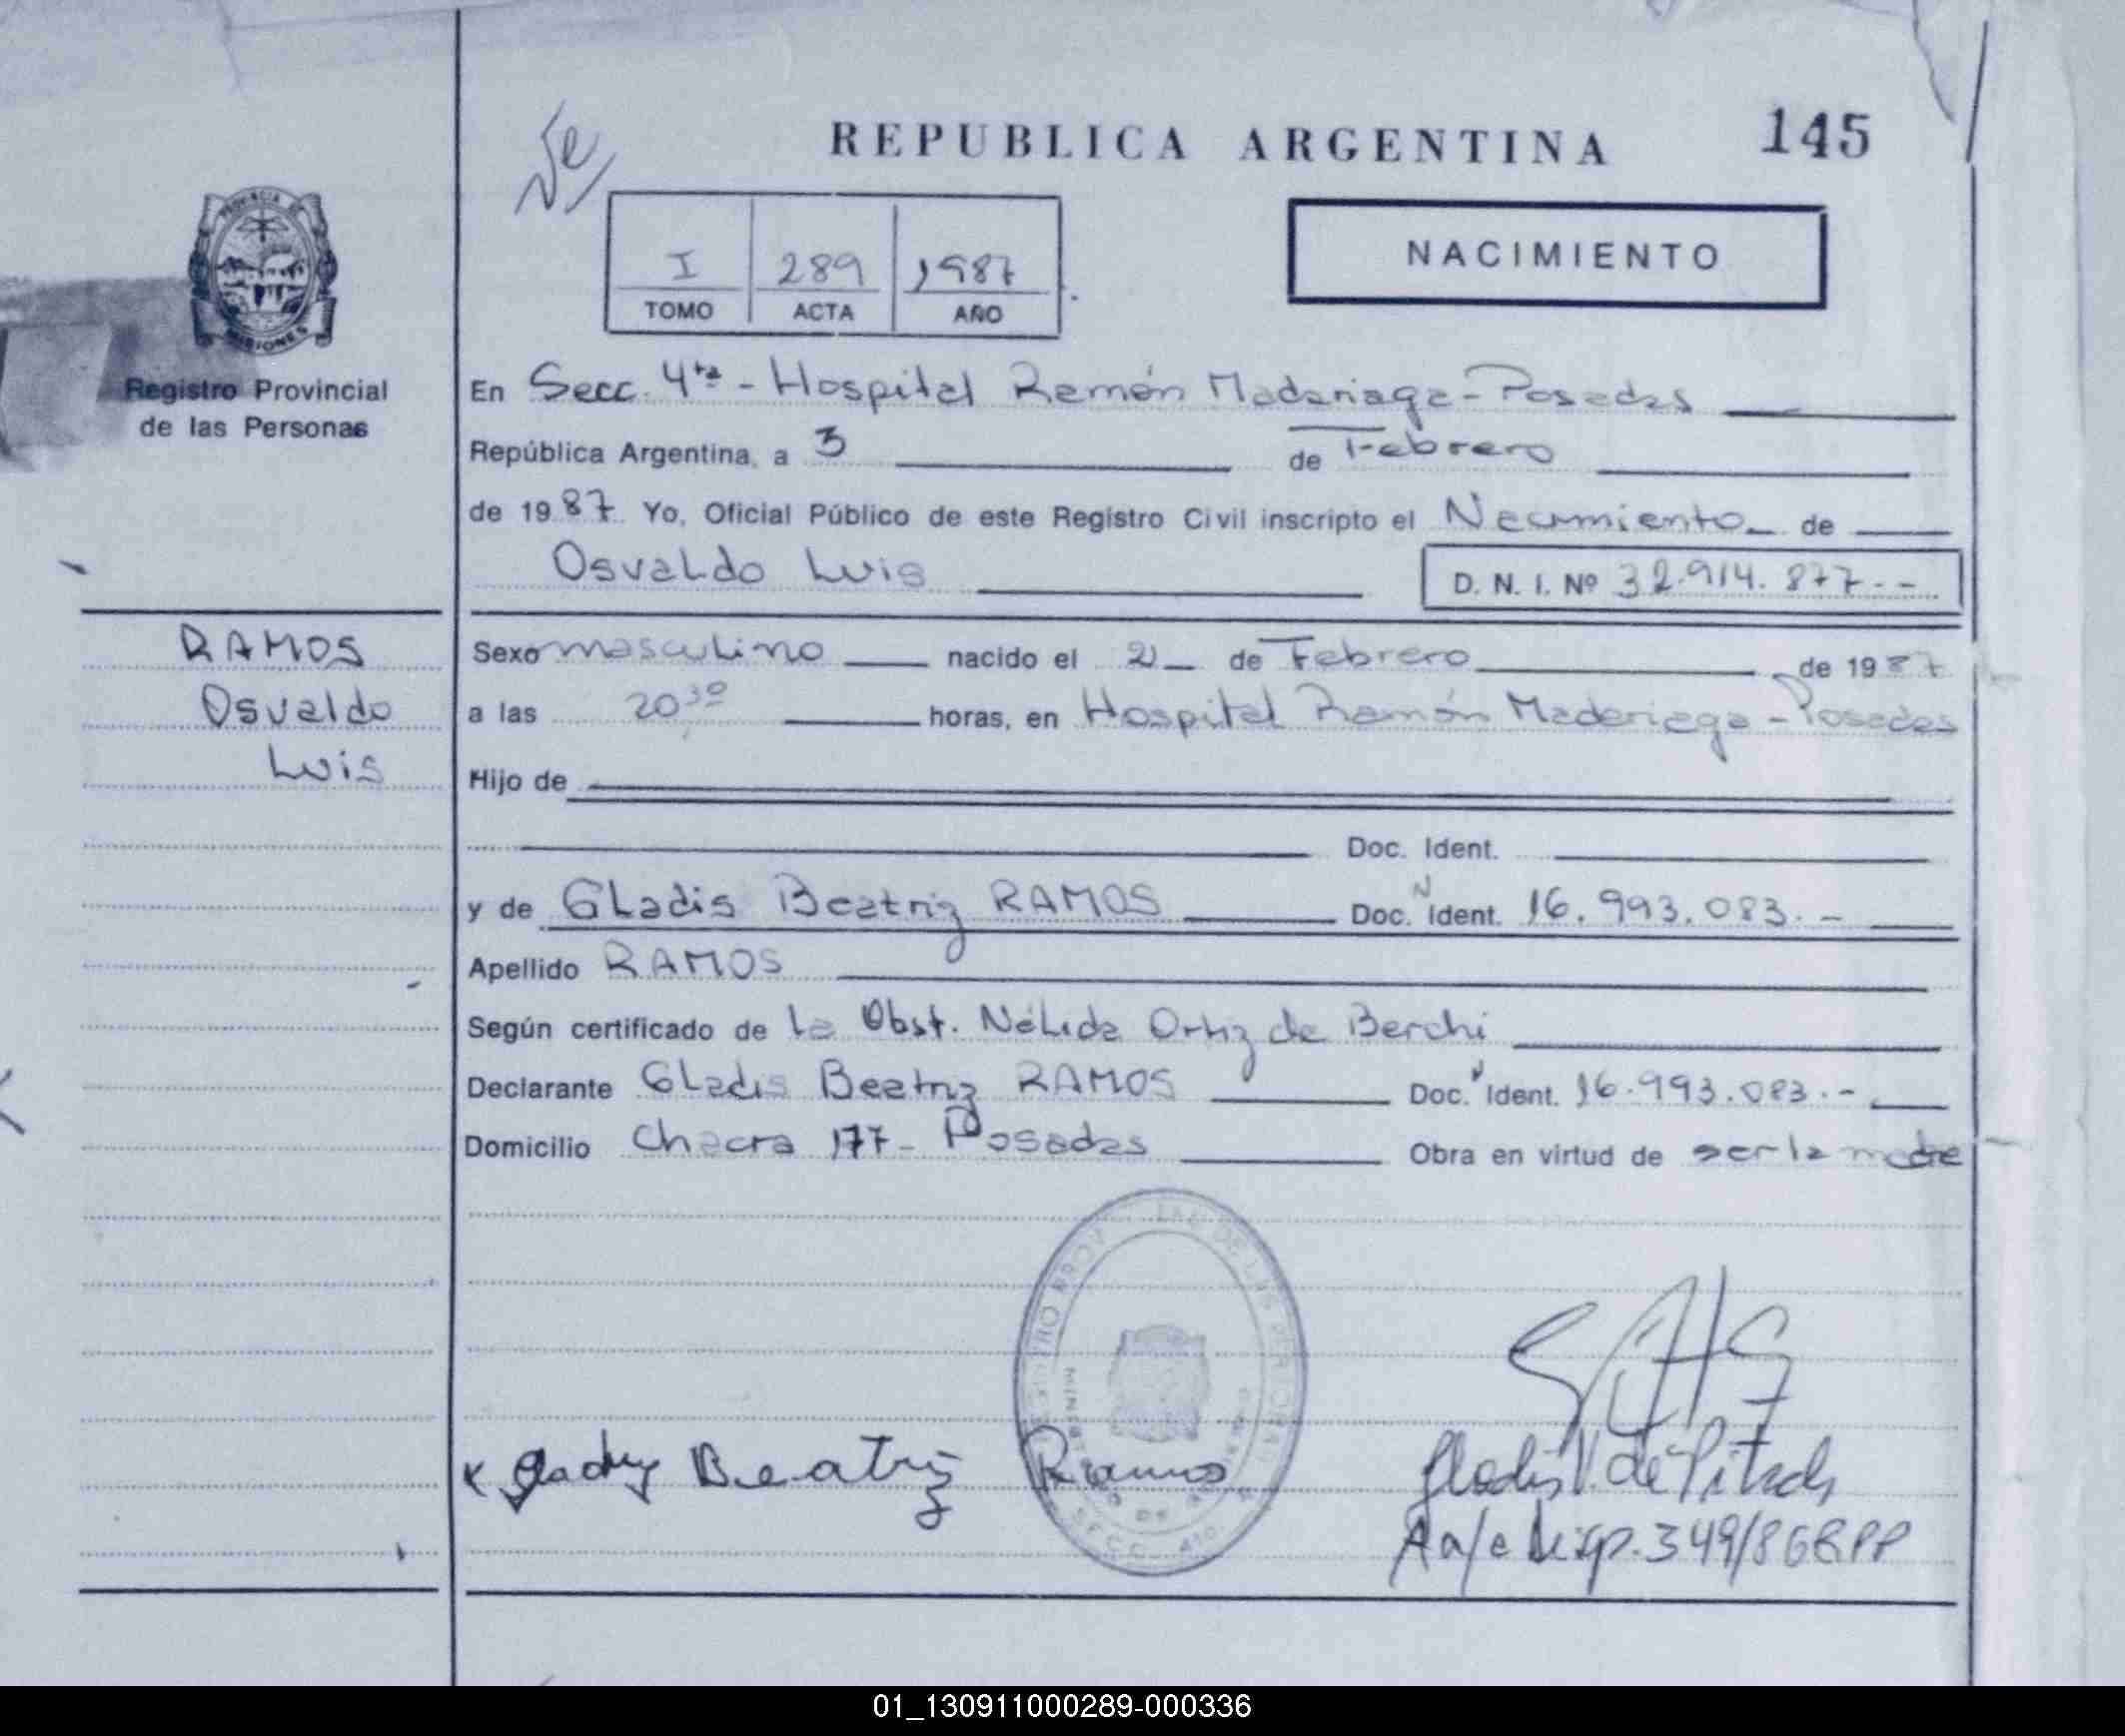 REPUBLICA ARGENTINA
145
PROVINCIA DE
MISIONES
Registro Provincial
de las Personas
I 289 1987
TOMO ACTA AÑO
NACIMIENTO
En Secc. 4ta - Hospital Ramón Madariaga - Posadas
República Argentina, a 3 de Febrero
de 1987 Yo, Oficial Público de este Registro Civil inscripto el Nacimiento de
Osvaldo Luis
D. N. I. Nº 32.914.877.--
RAMOS
Osvaldo
Luis
Sexo masculino nacido el 2 de Febrero de 1987
a las 20 30 horas, en Hospital Ramón Madariaga - Posadas
Hijo de
Doc. Ident.
y de Gladis Beatriz RAMOS Doc. N Ident. 16.993.083.-
Apellido RAMOS
Según certificado de la Obst. Nélida Ortiz de Berchi
Declarante Gladis Beatriz RAMOS Doc. Ident. 16.993.083.-
Domicilio Chacra 177 - Posadas Obra en virtud de ser la madre
Gladys Beatriz Ramos
SECC. 4ta.
01_130911000289-000336